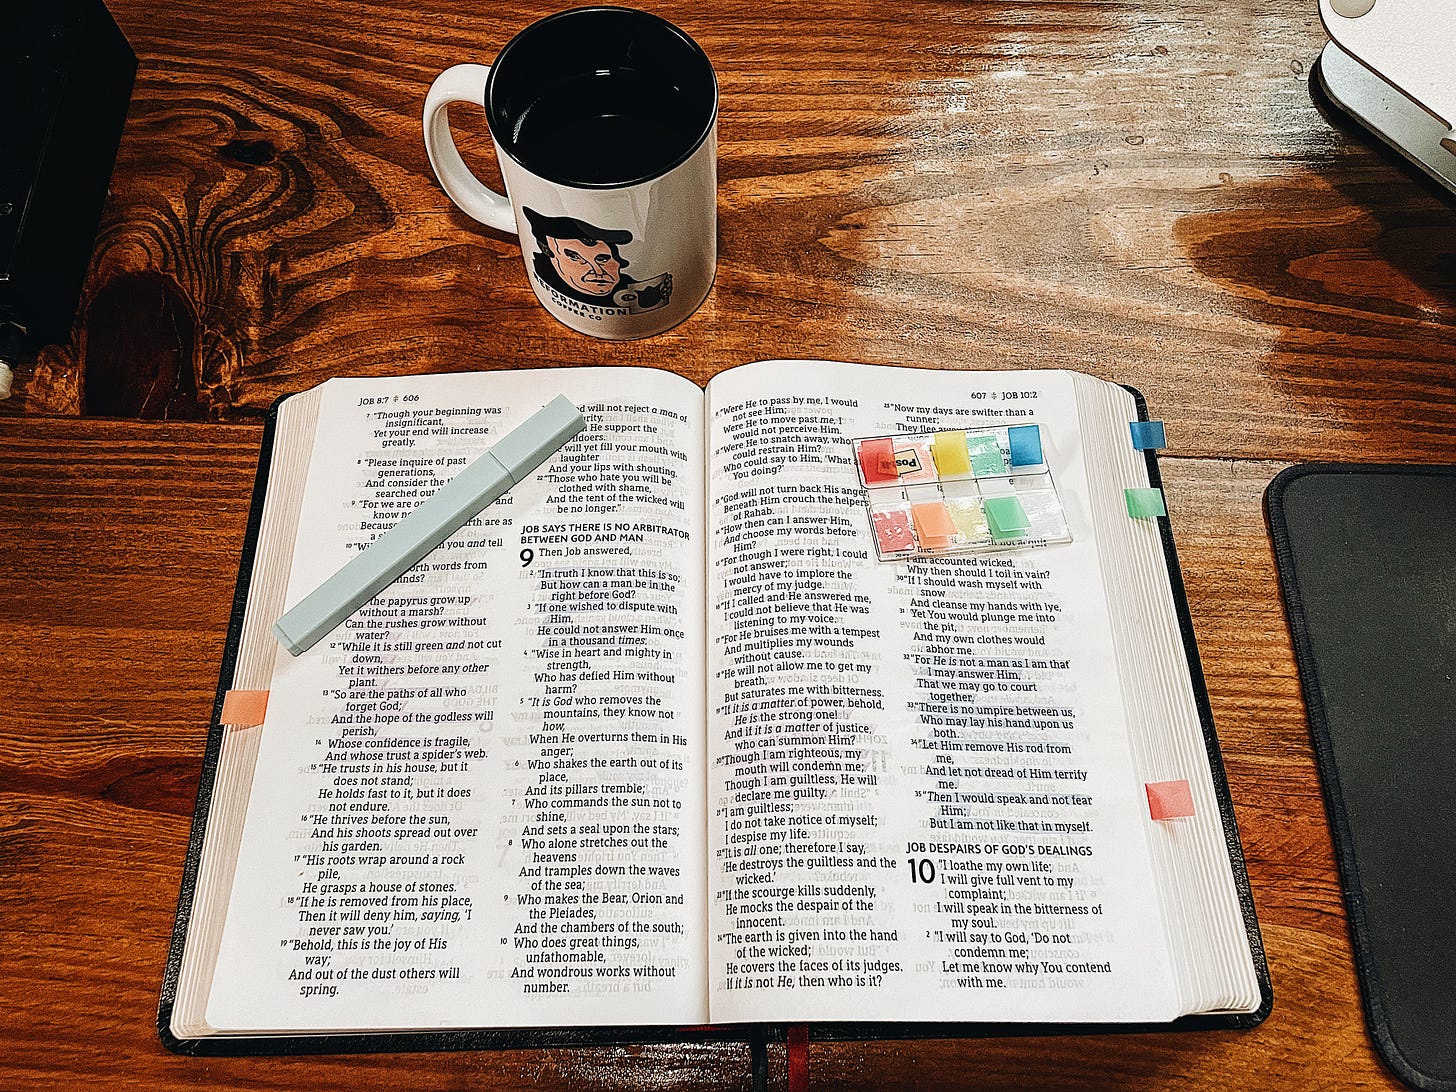 REFORMATION
COFFEE CO
JOB 8:7 606
7 "Though your beginning was
insignificant,
Yet your end will increase
greatly.
8 "Please inquire of past
generations,
And consider the
searched out
9 "For we are and
know
Because earth are as
a
10 "Will you and tell
forth words from
minds?
the papyrus grow up
without a marsh?
Can the rushes grow without
water?
12 "While it is still green and not cut
down,
Yet it withers before any other
plant.
13 "So are the paths of all who
forget God;
And the hope of the godless will
perish,
14 Whose confidence is fragile,
And whose trust a spider's web.
15 "He trusts in his house, but it
does not stand;
He holds fast to it, but it does
not endure.
16 "He thrives before the sun,
And his shoots spread out over
his garden.
17 "His roots wrap around a rock
pile,
He grasps a house of stones.
18 "If he is removed from his place,
Then it will deny him, saying, 'I
never saw you.'
19 "Behold, this is the joy of His
way;
And out of the dust others will
spring.
will not reject a man of
He support the
will yet fill your mouth with
laughter
And your lips with shouting.
22 "Those who hate you will be
clothed with shame,
And the tent of the wicked will
be no longer."
JOB SAYS THERE IS NO ARBITRATOR
BETWEEN GOD AND MAN
9 Then Job answered,
2 "In truth I know that this is so;
But how can a man be in the
right before God?
3 "If one wished to dispute with
Him,
He could not answer Him once
in a thousand times.
4 "Wise in heart and mighty in
strength,
Who has defied Him without
harm?
5 "It is God who removes the
mountains, they know not
how,
When He overturns them in His
anger;
6 Who shakes the earth out of its
place,
And its pillars tremble;
7 Who commands the sun not to
shine,
And sets a seal upon the stars;
8 Who alone stretches out the
heavens
And tramples down the waves
of the sea;
9 Who makes the Bear, Orion and
the Pleiades,
And the chambers of the south;
10 Who does great things,
unfathomable,
And wondrous works without
number.
607 JOB 10:2
"Were He to pass by me, I would
not see Him;
Were He to move past me, I
would not perceive Him.
"Were He to snatch away, who
could restrain Him?
Who could say to Him, 'What
You doing?'
"God will not turn back His anger;
Beneath Him crouch the helpers
of Rahab.
"How then can I answer Him,
And choose my words before
Him?
"For though I were right, I could
not answer;
I would have to implore the
mercy of my judge.
"If I called and He answered me,
I could not believe that He was
listening to my voice.
"For He bruises me with a tempest
And multiplies my wounds
without cause.
"He will not allow me to get my
breath,
But saturates me with bitterness.
"If it is a matter of power, behold,
He is the strong one!
And if it is a matter of justice,
who can summon Him?
"Though I am righteous, my
mouth will condemn me;
Though I am guiltless, He will
declare me guilty.
"I am guiltless;
I do not take notice of myself;
I despise my life.
"It is all one; therefore I say,
'He destroys the guiltless and the
wicked.'
"If the scourge kills suddenly,
He mocks the despair of the
innocent.
"The earth is given into the hand
of the wicked;
He covers the faces of its judges.
If it is not He, then who is it?
25 "Now my days are swifter than a
runner;
They flee away,
Post-it
I am accounted wicked,
Why then should I toil in vain?
30 "If I should wash myself with
snow
And cleanse my hands with lye,
31 Yet You would plunge me into
the pit,
And my own clothes would
abhor me.
32 "For He is not a man as I am that
I may answer Him,
That we may go to court
together,
33 "There is no umpire between us,
Who may lay his hand upon us
both.
34 "Let Him remove His rod from
me,
And let not dread of Him terrify
me.
35 "Then I would speak and not fear
Him;
But I am not like that in myself.
JOB DESPAIRS OF GOD'S DEALINGS
10 "I loathe my own life;
I will give full vent to my
complaint;
I will speak in the bitterness of
my soul.
2 "I will say to God, 'Do not
condemn me;
Let me know why You contend
with me.